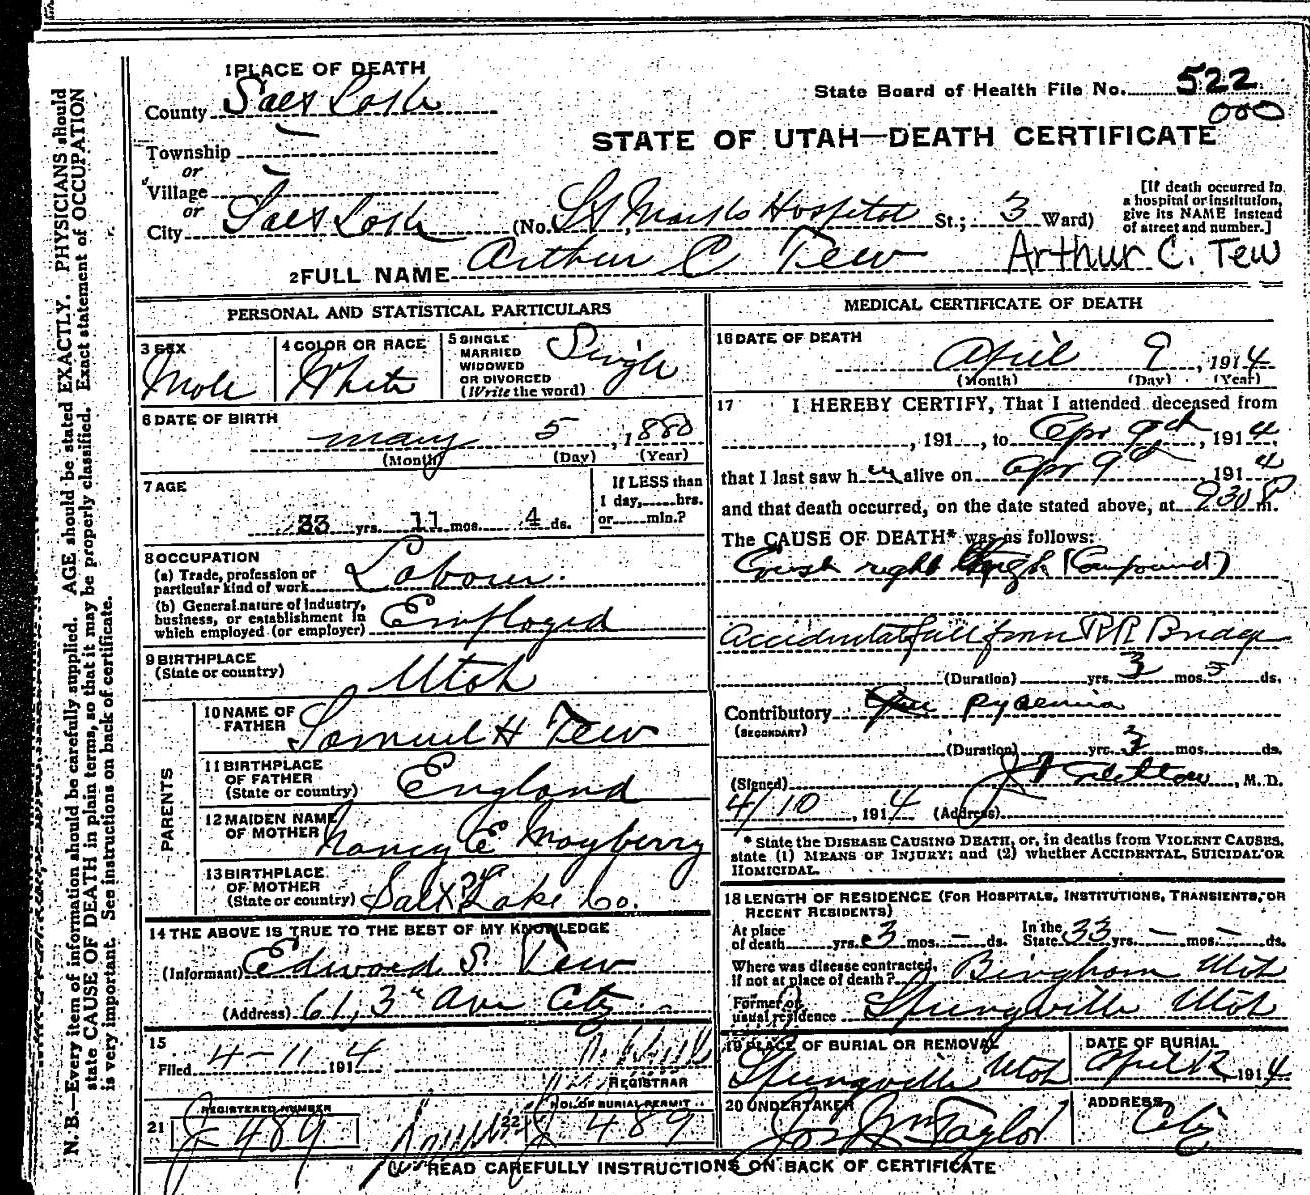 1 PLACE OF DEATH
County Salt Lake
State Board of Health File No. 522
000
STATE OF UTAH—DEATH CERTIFICATE
Township
or
Village
or
City Salt Lake (No. St Marks Hospital St.; 3 Ward)
[If death occurred in a hospital or institution, give its NAME instead of street and number.]
2 FULL NAME Arthur C Tew Arthur C. Tew
PERSONAL AND STATISTICAL PARTICULARS
3 SEX Male
4 COLOR OR RACE White
5 SINGLE MARRIED WIDOWED OR DIVORCED (Write the word) Single
6 DATE OF BIRTH May 5, 1880
(Month) (Day) (Year)
7 AGE 33 yrs. 11 mos. 4 ds.
If LESS than 1 day, hrs. or min.?
8 OCCUPATION
(a) Trade, profession or particular kind of work Labour.
(b) General nature of industry, business, or establishment in which employed (or employer) Employed
9 BIRTHPLACE (State or country) Utah
PARENTS
10 NAME OF FATHER Samuel H Tew
11 BIRTHPLACE OF FATHER (State or country) England
12 MAIDEN NAME OF MOTHER Nancy E Mayberry
13 BIRTHPLACE OF MOTHER (State or country) Salt Lake Co.
14 THE ABOVE IS TRUE TO THE BEST OF MY KNOWLEDGE
(Informant) Edward S. Tew
(Address) 61, 3rd Ave City
15
Filed 4-11 1914
REGISTRAR
21 REGISTERED NUMBER J-489
22 NO. OF BURIAL PERMIT J 489
MEDICAL CERTIFICATE OF DEATH
16 DATE OF DEATH
April 9, 1914
(Month) (Day) (Year)
17 I HEREBY CERTIFY, That I attended deceased from
, 191 , to Apr 9th, 1914
that I last saw him alive on Apr 9th 1914
and that death occurred, on the date stated above, at 930 P m.
The CAUSE OF DEATH* was as follows:
Crush right thigh (Compound)
Accidental fall from RR Bridge
(Duration) yrs. 3 mos. 5 ds.
Contributory pyaemia
(SECONDARY)
(Duration) yrs. 3 mos. ds.
(Signed) M. D.
4/10, 1914 (Address)
* State the DISEASE CAUSING DEATH, or, in deaths from VIOLENT CAUSES, state (1) MEANS OF INJURY; and (2) whether ACCIDENTAL, SUICIDAL OR HOMICIDAL.
18 LENGTH OF RESIDENCE (FOR HOSPITALS, INSTITUTIONS, TRANSIENTS, OR RECENT RESIDENTS)
At place of death yrs. 3 mos. — ds. In the State 33 yrs. — mos. — ds.
Where was disease contracted, if not at place of death? Bingham Utah
Former or usual residence Springville Utah
19 PLACE OF BURIAL OR REMOVAL Springville Utah
DATE OF BURIAL April 12, 1914
20 UNDERTAKER Jos Wm Taylor
ADDRESS City
READ CAREFULLY INSTRUCTIONS ON BACK OF CERTIFICATE
N. B.—Every item of information should be carefully supplied. AGE should be stated EXACTLY. PHYSICIANS should
state CAUSE OF DEATH in plain terms, so that it may be properly classified. Exact statement of OCCUPATION
is very important. See instructions on back of certificate.